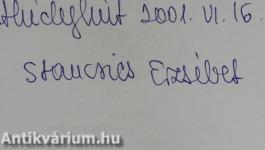 2001. VI. 16.
Stancsics Erzsébet
Antikvárium.hu